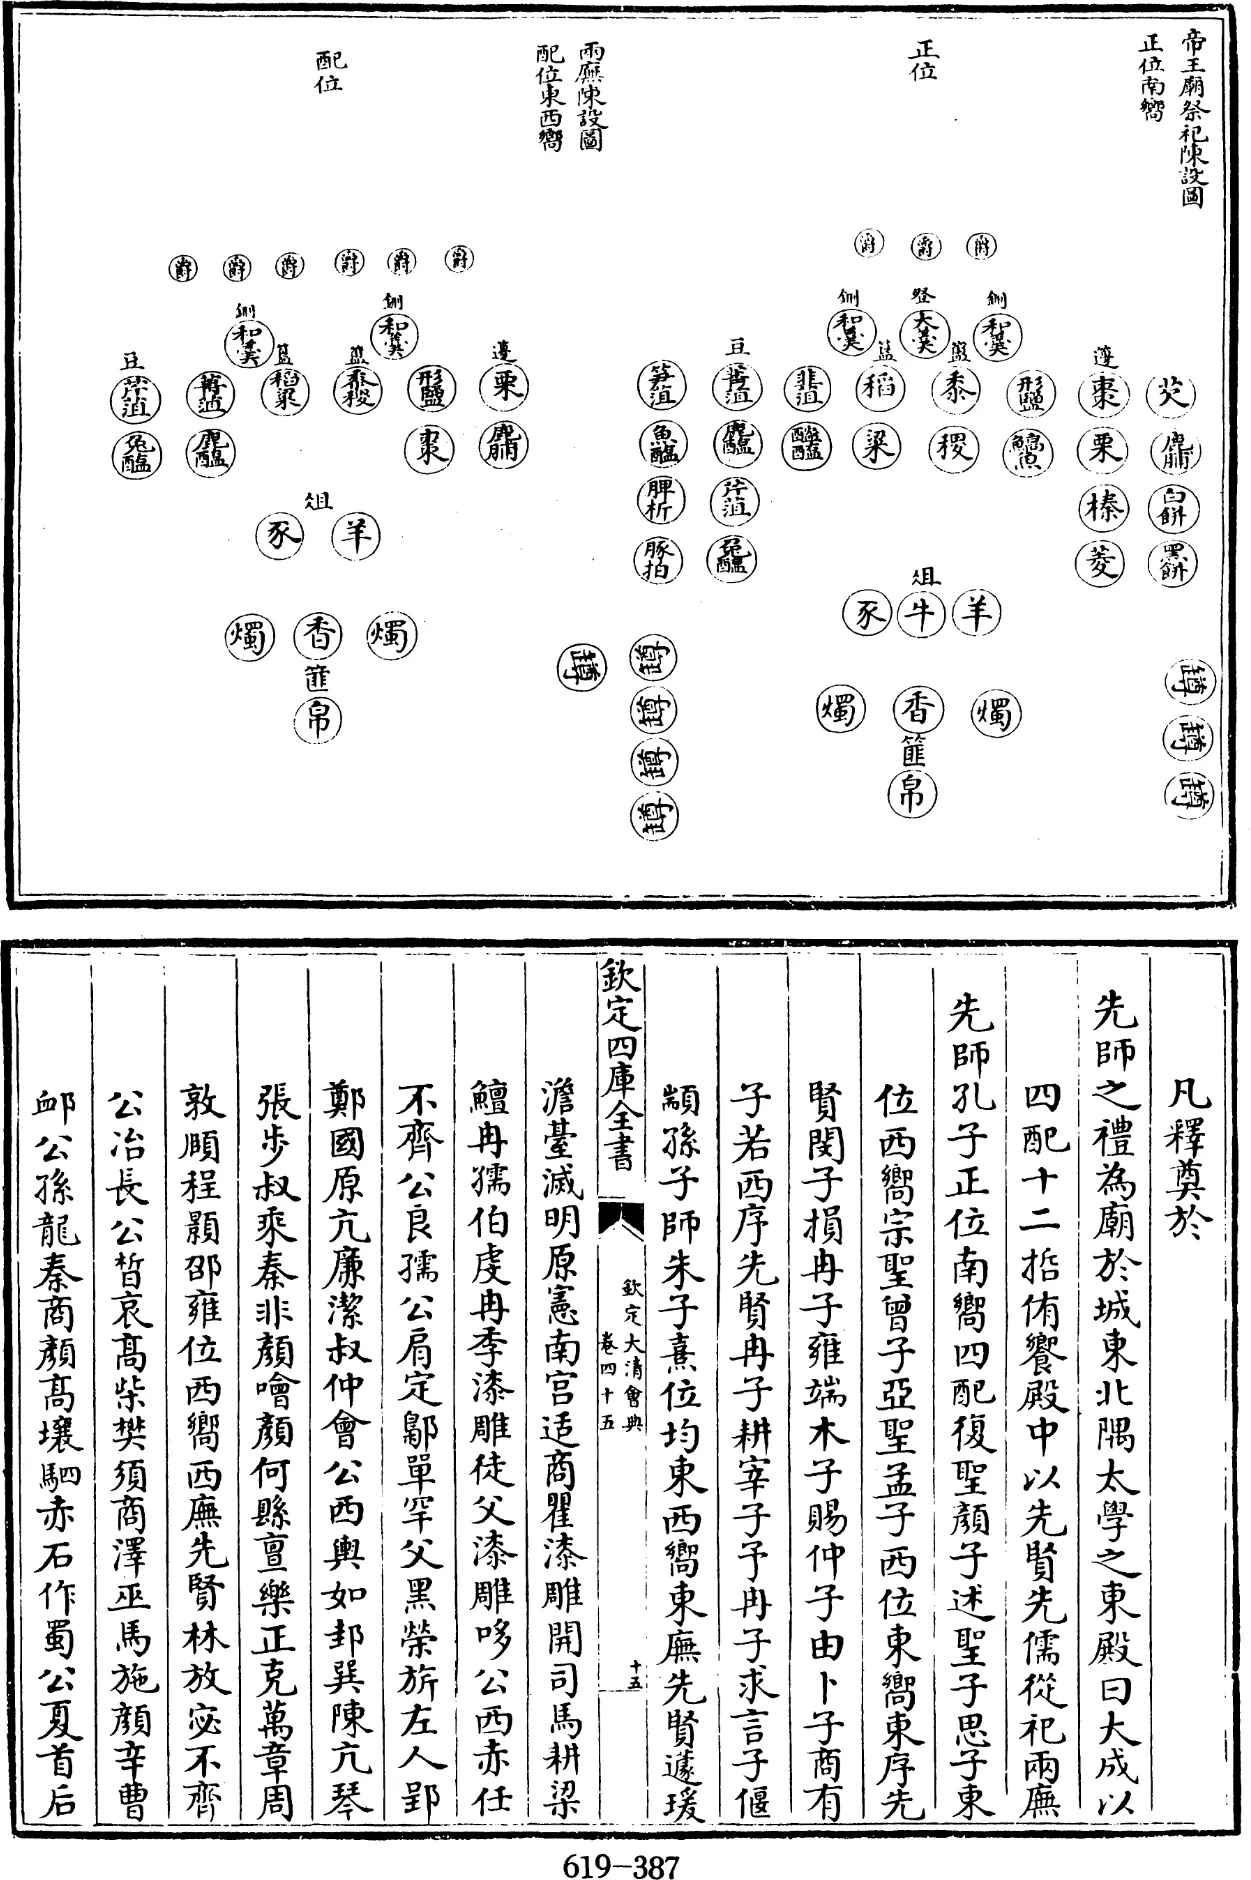 帝王廟祭祀陳設圖
正位南嚮
正位
爵
爵
爵
鉶
和羹
登
大羹
鉶
和羹
籩
芡
鹿脯
白餅
黑餅
棗
栗
榛
菱
形鹽
鱐魚
簠
黍
稷
簋
稻
粱
豆
韭菹
醓醢
菁菹
鹿醢
芹菹
兔醢
筍菹
魚醢
脾析
豚拍
俎
羊
牛
豕
燭
香
燭
篚
帛
罇
罇
罇
罇
罇
罇
罇
罇
兩廡陳設圖
配位東西嚮
配位
爵
爵
爵
爵
爵
爵
鉶
和羹
鉶
和羹
籩
栗
鹿脯
形鹽
棗
簠
黍稷
簋
稻粱
豆
菁菹
鹿醢
芹菹
兔醢
俎
羊
豕
燭
香
燭
篚
帛
凡釋奠於
先師之禮為廟於城東北隅太學之東殿曰大成以
四配十二哲侑饗殿中以先賢先儒從祀兩廡
先師孔子正位南嚮四配復聖顏子述聖子思子東
位西嚮宗聖曾子亞聖孟子西位東嚮東序先
賢閔子損冉子雍端木子賜仲子由卜子商有
子若西序先賢冉子耕宰子予冉子求言子偃
顓孫子師朱子熹位均東西嚮東廡先賢蘧瑗
欽定四庫全書
欽定大清會典
卷四十五
十五
澹臺滅明原憲南宮适商瞿漆雕開司馬耕梁
鱣冉孺伯虔冉季漆雕徒父漆雕哆公西赤任
不齊公良孺公肩定鄡單罕父黑榮旂左人郢
鄭國原亢廉潔叔仲會公西輿如邽巽陳亢琴
張步叔乘秦非顏噲顏何縣亶樂正克萬章周
敦頤程顥邵雍位西嚮西廡先賢林放宓不齊
公冶長公晳哀髙柴樊須商澤巫馬施顏辛曹
卹公孫龍秦商顏髙壤駟赤石作蜀公夏首后
619-387